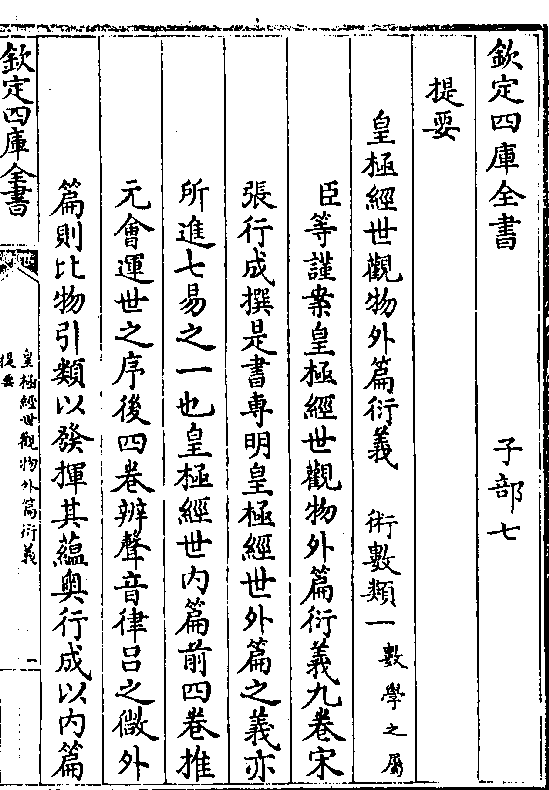 欽定四庫全書 子部七
提要
皇極經世觀物外篇衍義 術數類一 數學之屬
臣等謹案皇極經世觀物外篇衍義九卷宋
張行成撰是書專明皇極經世外篇之義亦
所進七易之一也皇極經世内篇前四卷推
元會運世之序後四卷辨聲音律吕之微外
篇則比物引類以發揮其蘊奥行成以内篇
欽定四庫全書
皇極經世觀物外篇衍義
提要
一